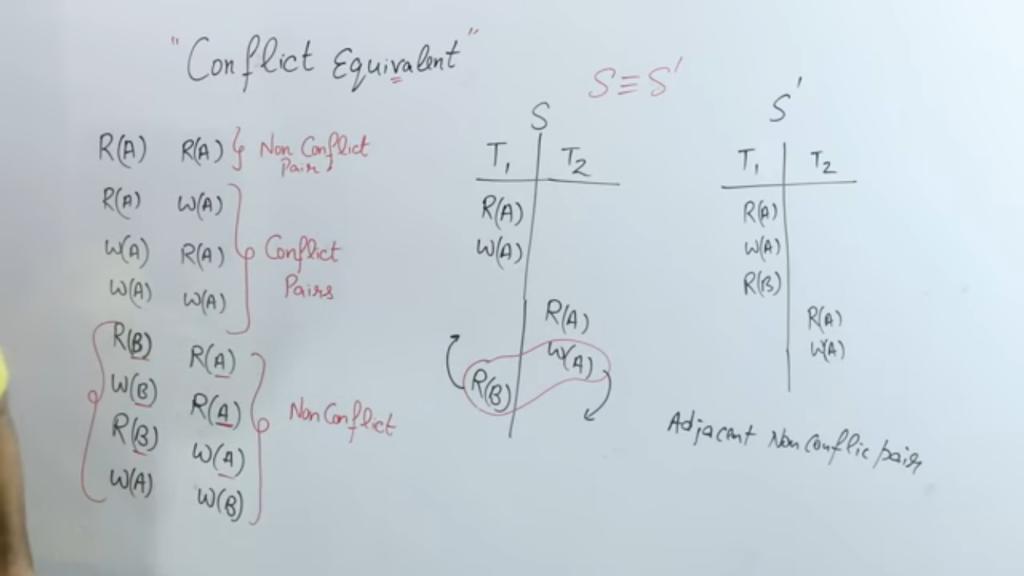 "Conflict Equivalent"
S≡S'
R(A) R(A) } Non Conflict
Pair
R(A) W(A)
W(A) R(A)
W(A) W(A)
Conflict
Pairs
R(B) R(A)
W(B) R(A)
R(B) W(A)
W(A) W(B)
Non Conflict
S
T1 T2
R(A)
W(A)
R(A)
W(A)
R(B)
S'
T1 T2
R(A)
W(A)
R(B)
R(A)
W(A)
Adjacent Non Conflic pair